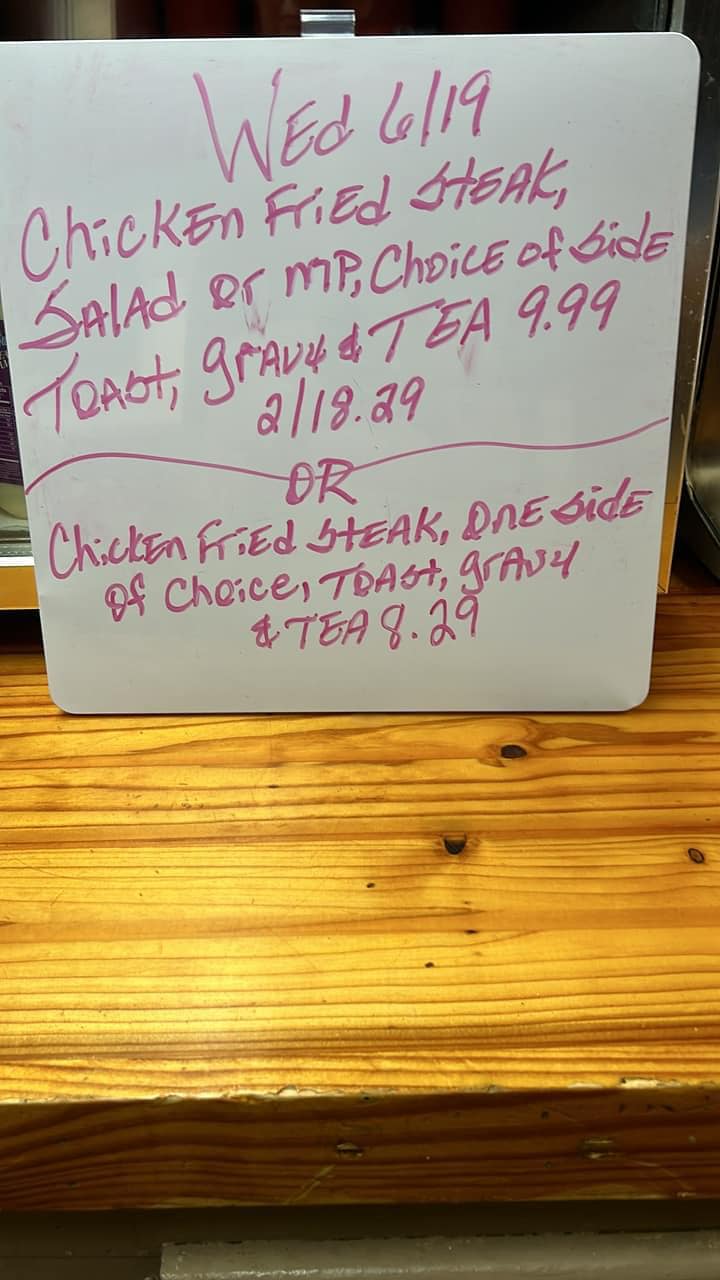 Wed 6/19
Chicken Fried Steak,
Salad or MP, Choice of Side
Toast, Gravy & TEA 9.99
2/18.29
OR
Chicken Fried Steak, One Side
of Choice, Toast, Gravy
& TEA 8.29